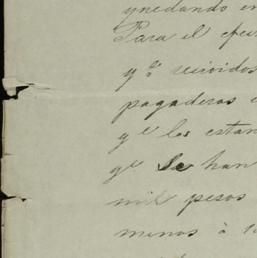 quedando en
Para el efec
y.º recividos
pagaderos
q.e los estan
q.e Se han
mil pesos
menos à 1